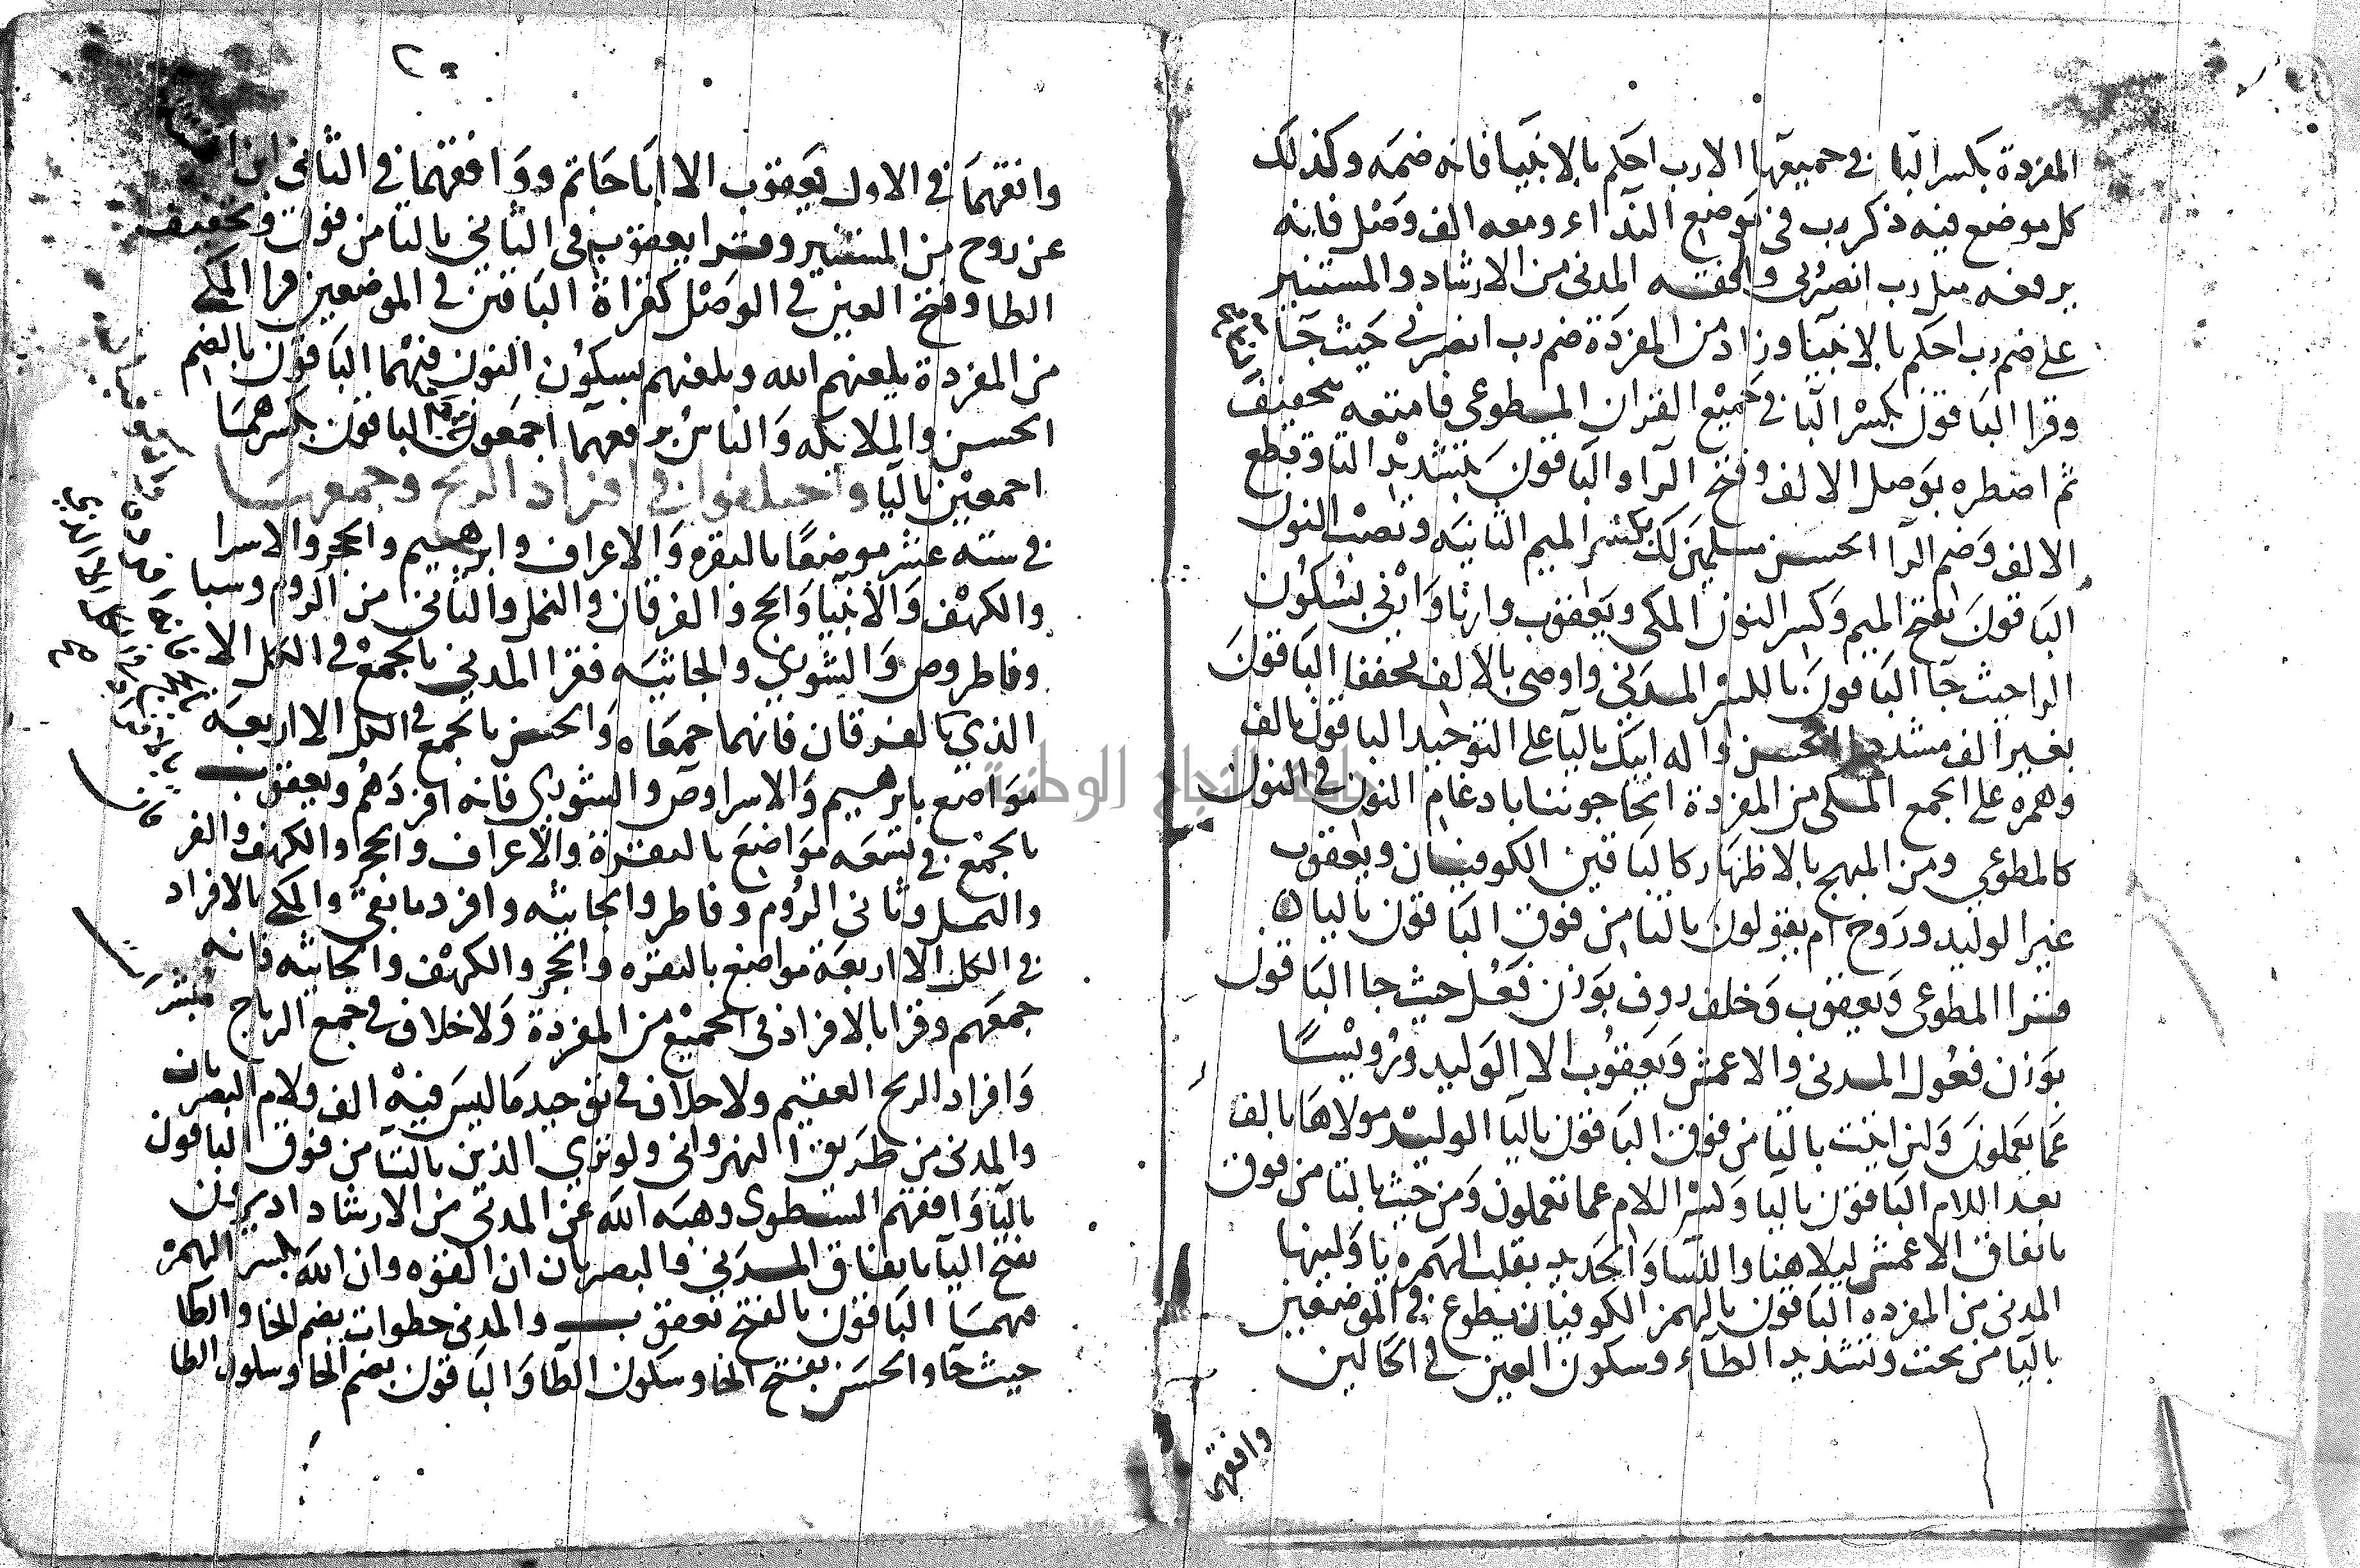 المفردة بكسر البا في جميعها الا رب احكم بالانبيا فانه ضمه وكذلك
كل موضع فيه ذكر رب في موضع النداء ومعه الف وصل فانه
يرفعه مثل رب انصرني وافقه المدني من الارشاد والمستنير
على ضم رب احكم بالانبيا وزاد من المفردة ضم رب انصرني حيث جآ
وقرا الباقون بكسر البا في جميع القران المطوعي فامتعه بتخفيف
ثم اضطره بوصل الالف وفتح الرا والباقون بتشديد التا وقطع
الالف وضم الرا الحسن مسلمين لك بكسر الميم الثانيه ونصب النون
الباقون بفتح الميم وكسر النون المكي ويعقوب وارنا وارني بسكون
الرا حيث جآ الباقون بالكسر المدني واوصى بالالف مخففا الباقون
بغير الف مشددا الحسن واله ابيك باليآ على التوحيد الباقون بالف
وهمزه على الجمع المكي من المفردة اتحاجوننا بادغام النون في النون
كالمطوعي ومن المبهج بالاظهار كالباقين الكوفيان ويعقوب
غير الوليد وروح ام يقولون بالتا من فوق الباقون باليا
قرا المطوعي ويعقوب وخلف روف بوزن فعل حيث جا الباقون
بوزن فعول المدني والاعمش ويعقوب الا الوليد ورويسا
عما يعملون ولئن اتيت بالتا من فوق الباقون باليا الوليد مولاها بالف
بعد اللام الباقون باليا وكسر اللام عما تعملون ومن حيث بالتا من فوق
باتفاق الاعمش ليلا هنا والنسا والحديد بقلب الهمزه يا ولينها
المدني من المفرده الباقون بالهمز الكوفيان يطوع في الموضعين
باليا من تحت وتشديد الطاء وسكون العين في الحالين
وافقهما
٢٥
وافقهما في الاول يعقوب الا ابا حاتم ووافقهما في الثاني
عن روح من المستنير وقرا يعقوب في الثاني بالتا من فوق وتخفيف
الطا وفتح العين في الوصل كقراة الباقين في الموضعين قرا المكي
من المفردة يلعنهم الله ويلعنهم بسكون النون فيهما الباقون بالضم
الحسن والملايكه والناس برفعهما اجمعون الباقون بكسرهما
اجمعين باليا واختلفوا في افراد الريح وجمعها
في سته عشر موضعا بالبقره والاعراف وابرهيم والحجر والاسرا
والكهف والانبيا والحج والفرقان والنمل والثاني من الروم وسبا
وفاطر وص والشوري والجاثيه فقرا المدني بالجمع في الكل الا
الذي بالفرقان فانهما جمعاه والحسن بالجمع في الكل الا اربعه
مواضع بابرهيم والاسرا وص والشوري فانه افردهم ويعقوب
بالجمع في تسعه مواضع بالبقرة والاعراف والحجر والكهف والفر
والنمل وثاني الروم وفاطر والجاثيه وافرد ما بقي والمكي بالافراد
في الكل الا اربعة مواضع بالبقره والحجر والكهف والجاثيه فانه
جمعهم وقرا بالافراد في الجميع من المفردة ولا خلاف في جمع الرياح مبشرات
وافراد الريح العقيم ولا خلاف في توحيد ما ليس فيه الف ولام البصريان
والمدني من طريق النهرواني ولو تري الذين بالتا من فوق الباقون
باليا وافقهم الشطوي وهبه الله عن المدني من الارشاد اذ يرون
بفتح اليا باتفاق المدني والبصريان ان القوه وان الله بكسر الهمزة
فيهما الباقون بالفتح يعقوب والمدني خطوات بضم الخا والطا
حيث جآ والحسن بفتح الخا وسكون الطا والباقون بضم الخا وسكون الطا
جامعة النجاح الوطنية